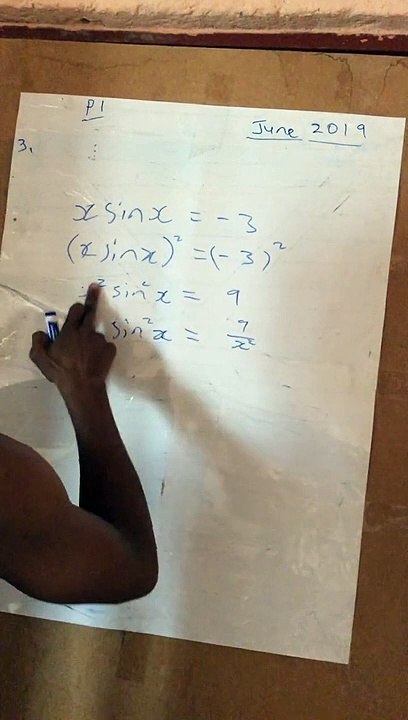 P1
June 2019
3.
x sin x = -3
(x sin x)² = (-3)²
x² sin² x = 9
sin² x = 9/x²